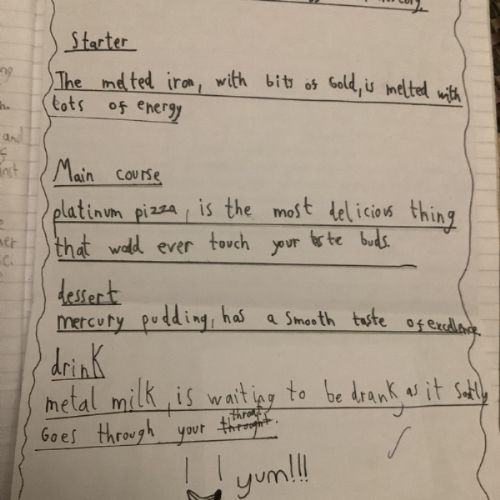 Starter
The melted iron, with bits of Gold, is melted with
lots of energy
Main course
platinum pizza, is the most delicious thing
that would ever touch your taste buds.
dessert
mercury pudding, has a smooth taste of excellence
drink
metal milk, is waiting to be drank, as it softly
throat
Goes through your throught.
yum!!!